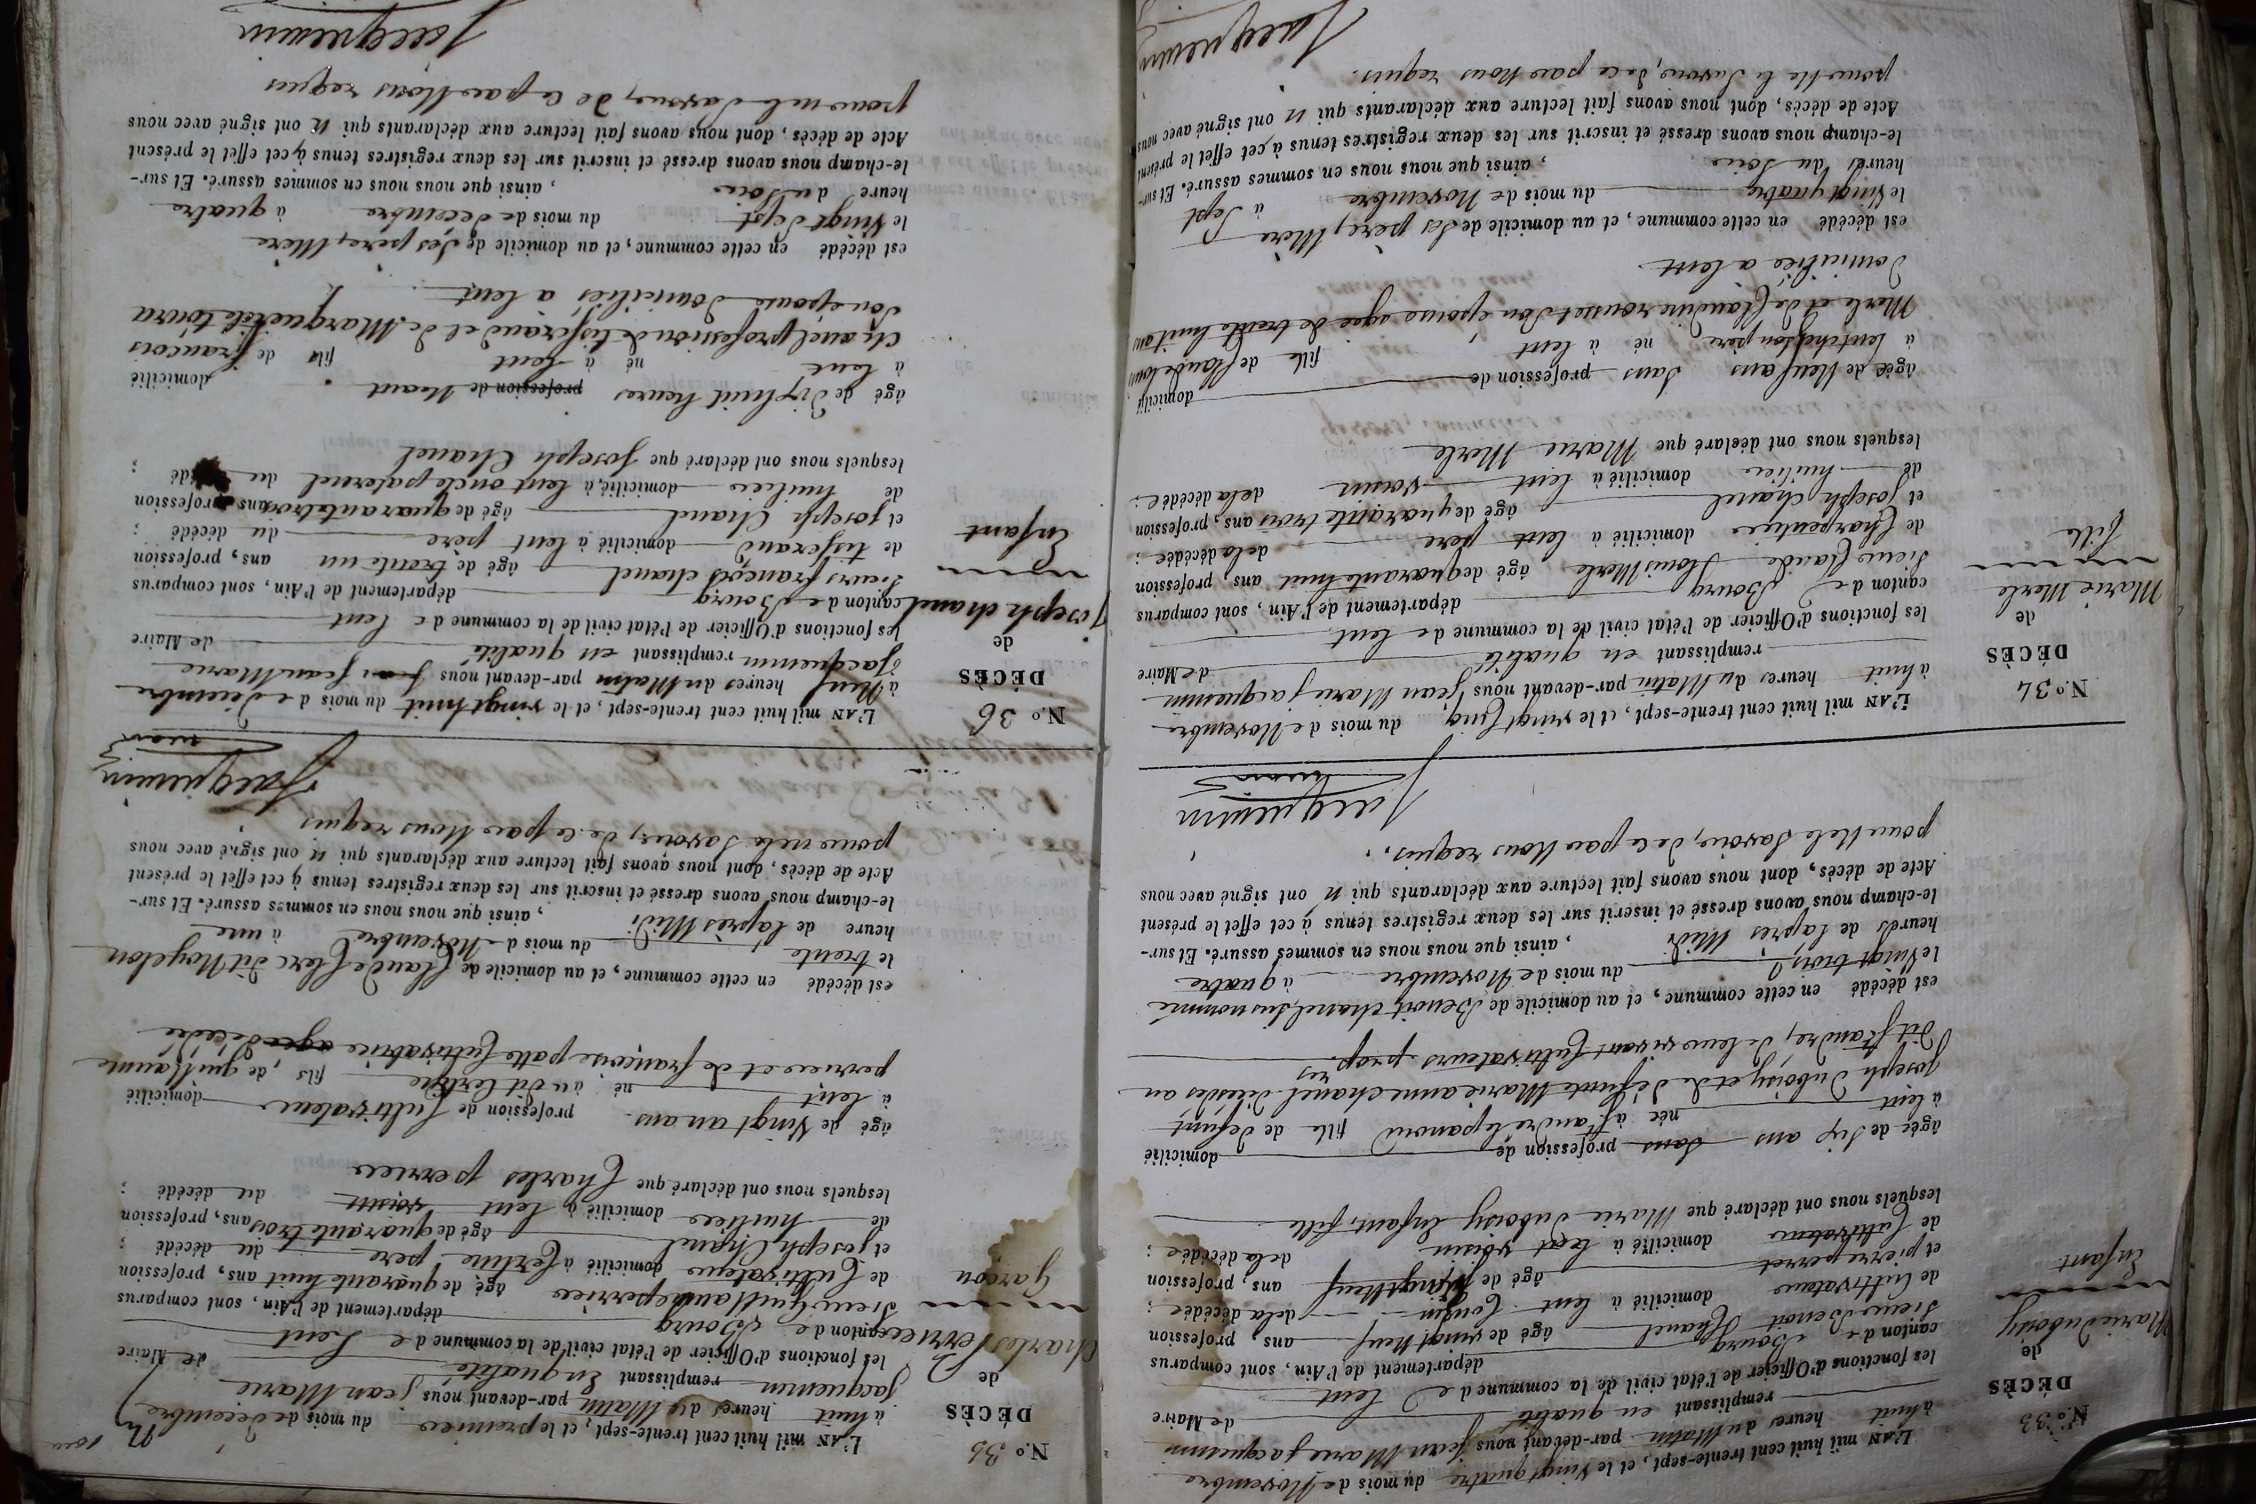 N.o 33
DÉCÈS
de
Marie Duboisy
Enfant
L'AN mil huit cent trente-sept, et le vingt quatre du mois de Novembre
à huit heures du Matin par-devant nous Jean Marie jacquemin
remplissant en qualité de Maire
les fonctions d'Officier de l'état civil de la commune de Lent
canton de Bourg département de l'Ain, sont comparus
Sieur Benoit Chanel âgé de vingt Neuf ans, profession
de Cultivateur domicilié à lent Cousin de la décédée ;
et pierre perret âgé de vingt Neuf ans, profession
de Cultivateur domicilié à lent voisin de la décédée ;
lesquels nous ont déclaré que Marie Duboisy Enfant, fille
âgée de Six ans Sans profession de domicilié
à lent née à St andré lepanoux fille de défunt
joseph Duboisy et de défunte Marie anne chanel décédés au
dit St andré, de leur vivant Cultivateurs propres
est décédé en cette commune, et au domicile de Benoit chanel Susnommé
le Vingt trois du mois de Novembre à quatre
heures de laprès Midi , ainsi que nous nous en sommes assuré. Et sur-
le-champ nous avons dressé et inscrit sur les deux registres tenus à cet effet le présent
Acte de décès, dont nous avons fait lecture aux déclarants qui n'ont signé avec nous
pour Ne le Savoir, de ce par Nous requis.
Jacquemin
maire
N.o 34
DÉCÈS
de
Marie Merle
fille
L'AN mil huit cent trente-sept, et le vingt Cinq du mois de Novembre
à huit heures du Matin par-devant nous Jean Marie jacquemin
remplissant en qualité de Maire
les fonctions d'Officier de l'état civil de la commune de lent
canton de Bourg département de l'Ain, sont comparus
Sieur Claude Louis Merle âgé de quarante huit ans, profession
de Charpentier domicilié à lent pere de la décédée ;
et joseph chanel âgé de quarante trois ans, profession
de huilier domicilié à lent voisin de la décédée ;
lesquels nous ont déclaré que Marie Merle
âgée de Neuf ans Sans profession de domicilié
à lent chez son père né à lent fille de Claude Louis
Merle et de Claudine rousset Son épouse agée de trente huit ans
Domiciliée a lent
est décédé en cette commune, et au domicile de Ses père, Mère
le Vingt quatre du mois de Novembre à Sept
heures du Soir , ainsi que nous nous en sommes assuré. Et sur-
le-champ nous avons dressé et inscrit sur les deux registres tenus à cet effet le présent
Acte de décès, dont nous avons fait lecture aux déclarants qui n'ont signé avec nous
pour Ne le Savoir, de ce par Nous requis.
Jacquemin
N.o 35
DÉCÈS
de
Charles Perrier
Garçon
L'AN mil huit cent trente-sept, et le premier du mois de décembre
à huit heures du Matin par-devant nous jean Marie
Jacquemin remplissant En qualité de Maire
les fonctions d'Officier de l'état civil de la commune de Lent
canton de Bourg département de l'Ain, sont comparus
Sieur Guillaume perrier âgé de quarante huit ans, profession
de Cultivateur domicilié à Certine pere du décédé ;
et joseph Chanel âgé de quarante trois ans, profession
de huilier domicilié à lent voisin du décédé ;
lesquels nous ont déclaré que Charles perrier
âgé de Vingt un ans profession de Cultivateur domicilié
à lent né à dit Certine fils de guillaume
perrier et de françoise patte Cultivatrice agee décédée
est décédé en cette commune, et au domicile de Claude Clerc dit Noyelon
le trente du mois d Novembre à une
heure de laprès Midi , ainsi que nous nous en sommes assuré. Et sur-
le-champ nous avons dressé et inscrit sur les deux registres tenus à cet effet le présent
Acte de décès, dont nous avons fait lecture aux déclarants qui n'ont signé avec nous
pour ne le Savoir, de ce par Nous requis
Jacquemin
maire
N.o 36
DÉCÈS
de
Joseph chanel
Enfant
L'AN mil huit cent trente-sept, et le vingt huit du mois de décembre
à Neuf heures du Matin par-devant nous jean Marie
jacquemin remplissant en qualité de Maire
les fonctions d'Officier de l'état civil de la commune de lent
canton de Bourg département de l'Ain, sont comparus
Sieurs françois chanel âgé de trente un ans, profession
de tisserand domicilié à lent père du décédé ;
et joseph Chanel âgé de quarante trois ans, profession
de huilier domicilié à lent oncle paternel du décédé ;
lesquels nous ont déclaré que joseph Chanel
âgé de Dix huit heures profession de Neant domicilié
à lent né à lent fils de françois
Chanel profession de tisserand et de Marguerite toura
Son epouse Domiciliés a lent
est décédé en cette commune, et au domicile de Ses père, Mère
le Vingt Sept du mois de décembre à quatre
heure du Soir , ainsi que nous nous en sommes assuré. Et sur-
le-champ nous avons dressé et inscrit sur les deux registres tenus à cet effet le présent
Acte de décès, dont nous avons fait lecture aux déclarants qui n'ont signé avec nous
pour ne le Savoir, de ce par Nous requis
Jacquemin